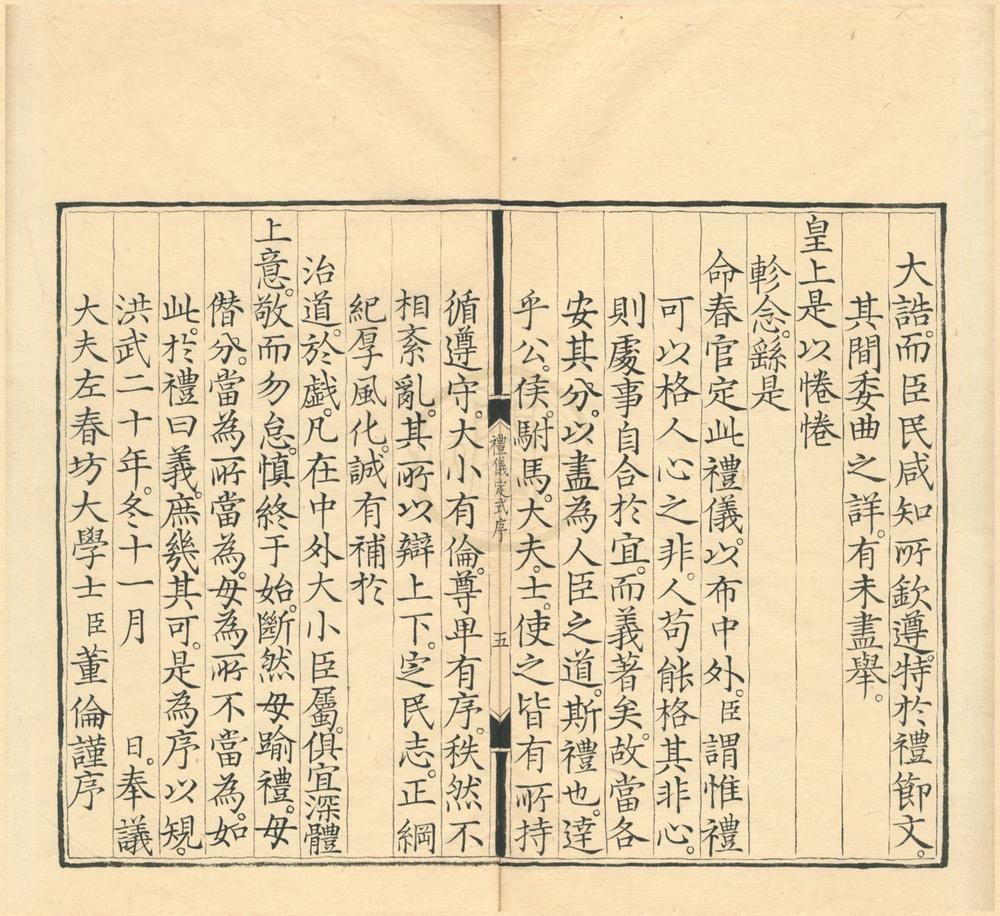 大誥。而臣民咸知所欽遵。特於禮節文。
其間委曲之詳。有未盡舉。
皇上是以惓惓
軫念。繇是
命春官定此禮儀。以布中外。臣謂惟禮
可以格人心之非。人苟能格其非心。
則處事自合於宜。而義著矣。故當各
安其分。以盡為人臣之道。斯禮也。達
乎公。侯。駙馬。大夫。士。使之皆有所持
禮儀定式序
五
循遵守。大小有倫。尊卑有序。秩然不
相紊亂。其所以辯上下。定民志。正綱
紀厚風化。誠有補於
治道。於戲。凡在中外大小臣屬。俱宜深體
上意。敬而勿怠。慎終于始。斷然毋踰禮。毋
僭分。當為所當為。毋為所不當為。如
此。於禮曰義。庶幾其可。是為序以規。
洪武二十年。冬十一月 日。奉議
大夫左春坊大學士臣董倫謹序